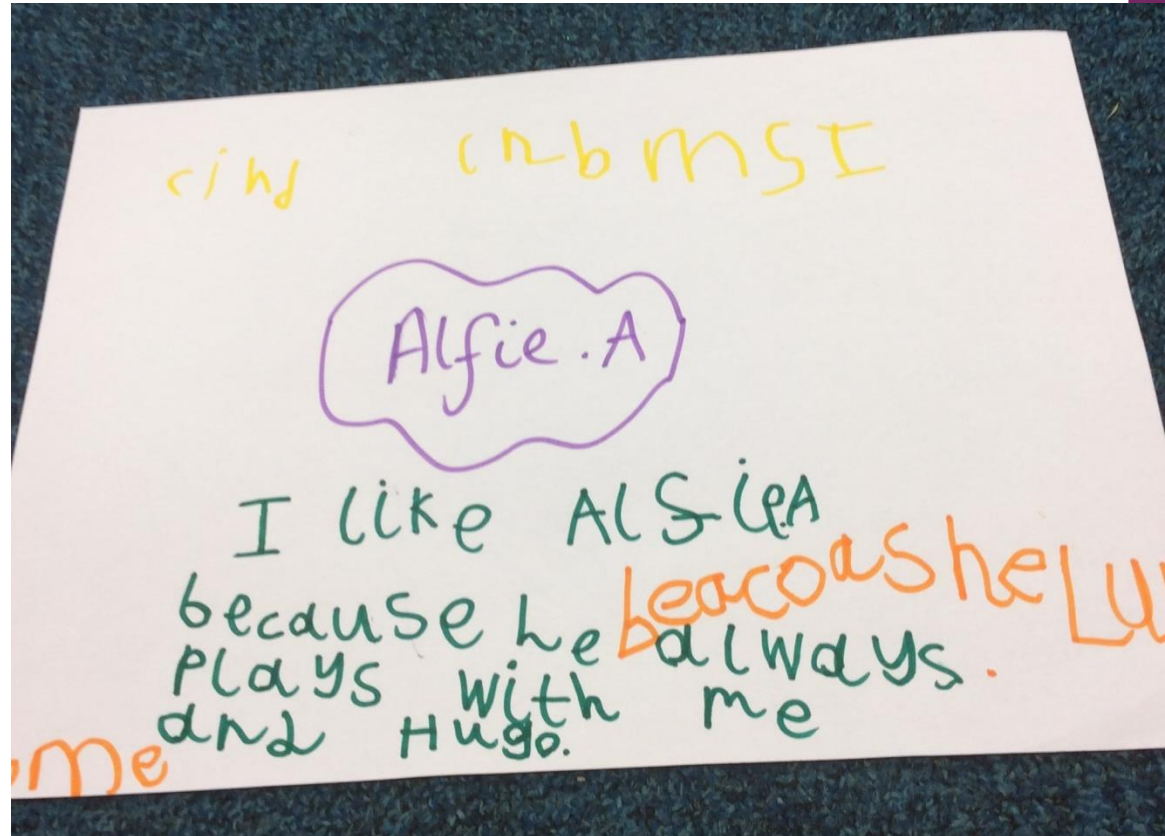 cind cnbmSI
Alfie.A
I like AlfieA
because he always.
plays with me
and Hugo.
beacoas he Lu
me